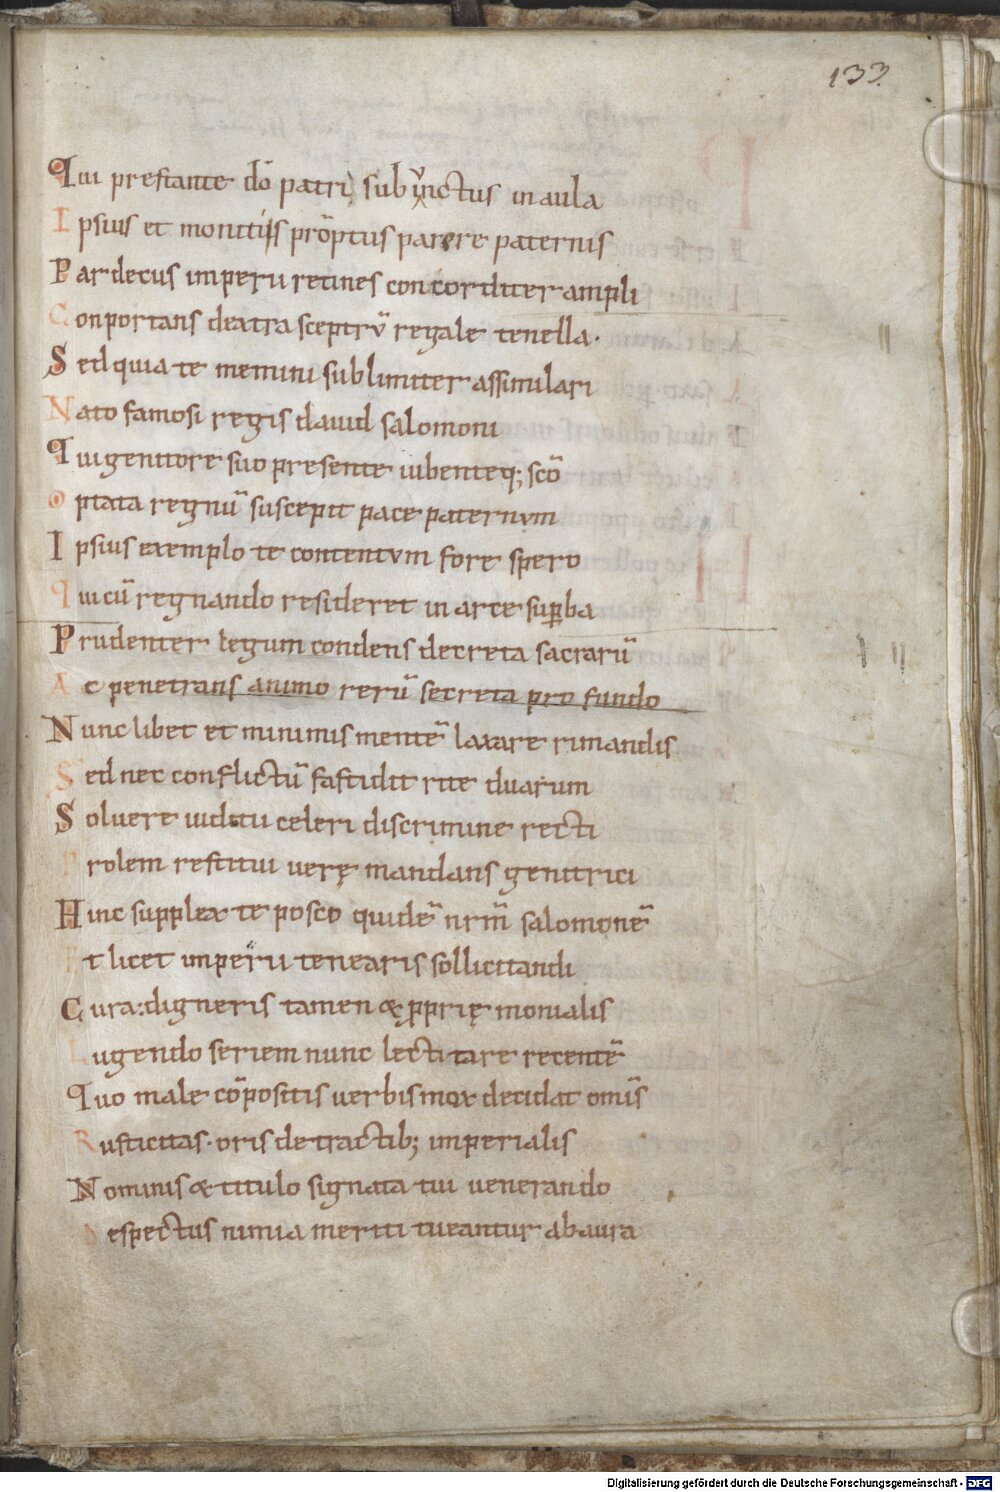 133
Qui prestante dō patri subiunctus in aula
Ipsius et monitis prōptus parere paternis
Par decus imperii retines concorditer ampli
Conportans dextra sceptrū regale tenella.
Sed quia te memini sublimiter assimilari
Nato famosi regis dauid salomoni
Qui genitore suo presente iubenteq; scō
optata regnū suscepit pace paternum
Ipsius exemplo te contentum fore spero
qui cū regnando resideret in arce suꝑba
Prudenter legum condens decreta sacrarū
Ac penetrans animo rerū secreta pro fundo
Nunc libet et minimis mentē laxare rimandis
Sed nec conflictū fastidit rite duarum
Soluere iuditii celeri discrimine recti
Prolem restitui uerę mandans genitrici
Hinc supplex te posco quidē nrm̄ salomonē
Et licet imperii tenearis sollicitandi
Cura: digneris tamen & ꝓprię monialis
Lugendo seriem nunc lectitare recentē
Quo male cōpositis uerbis mox decidat omīs
Rusticitas. oris detractib; imperialis
Nominis & titulo signata tui uenerando
Despectus nimia meriti tueantur ab aura
Digitalisierung gefördert durch die Deutsche Forschungsgemeinschaft - DFG